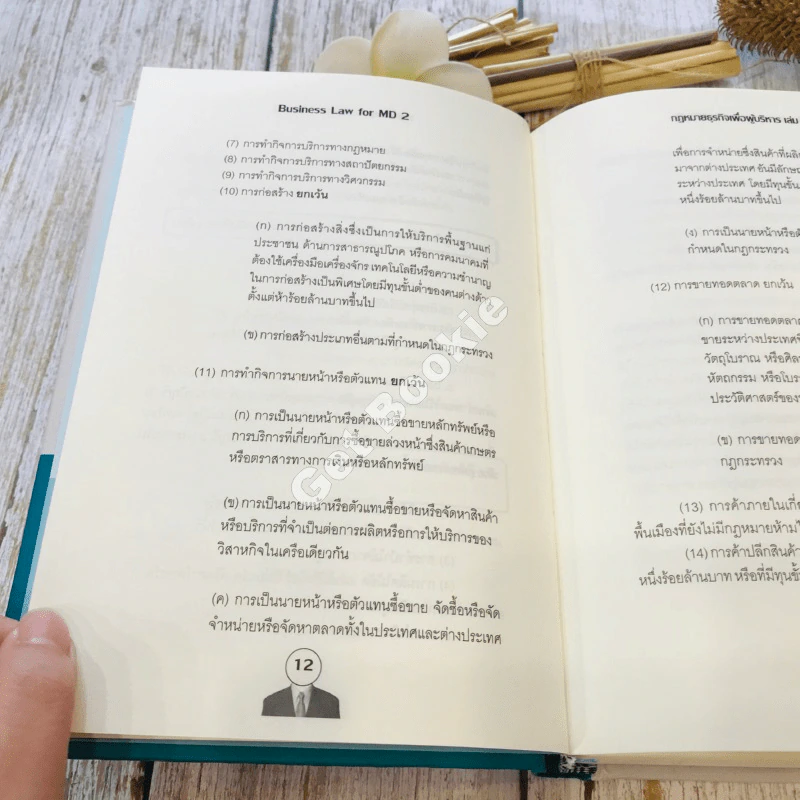 Business Law for MD 2
(7) การทำกิจการบริการทางกฎหมาย
(8) การทำกิจการบริการทางสถาปัตยกรรม
(9) การทำกิจการบริการทางวิศวกรรม
(10) การก่อสร้าง ยกเว้น
(ก) การก่อสร้างสิ่งซึ่งเป็นการให้บริการพื้นฐานแก่
ประชาชน ด้านการสาธารณูปโภค หรือการคมนาคมที่
ต้องใช้เครื่องมือเครื่องจักร เทคโนโลยีหรือความชำนาญ
ในการก่อสร้างเป็นพิเศษโดยมีทุนขั้นต่ำของคนต่างด้าว
ตั้งแต่ห้าร้อยล้านบาทขึ้นไป
(ข) การก่อสร้างประเภทอื่นตามที่กำหนดในกฎกระทรวง
(11) การทำกิจการนายหน้าหรือตัวแทน ยกเว้น
(ก) การเป็นนายหน้าหรือตัวแทนซื้อขายหลักทรัพย์หรือ
การบริการที่เกี่ยวกับการซื้อขายล่วงหน้าซึ่งสินค้าเกษตร
หรือตราสารทางการเงินหรือหลักทรัพย์
(ข) การเป็นนายหน้าหรือตัวแทนซื้อขายหรือจัดหาสินค้า
หรือบริการที่จำเป็นต่อการผลิตหรือการให้บริการของ
วิสาหกิจในเครือเดียวกัน
(ค) การเป็นนายหน้าหรือตัวแทนซื้อขาย จัดซื้อหรือจัด
จำหน่ายหรือจัดหาตลาดทั้งในประเทศและต่างประเทศ
12
กฎหมายธุรกิจเพื่อผู้บริหาร เล่ม
เพื่อการจำหน่ายซึ่งสินค้าที่ผลิต
มาจากต่างประเทศ อันมีลักษณ
ระหว่างประเทศ โดยมีทุนขั้น
หนึ่งร้อยล้านบาทขึ้นไป
(ง) การเป็นนายหน้าหรือตัว
กำหนดในกฎกระทรวง
(12) การขายทอดตลาด ยกเว้น
(ก) การขายทอดตลาด
ขายระหว่างประเทศที่
วัตถุโบราณ หรือศิลป
หัตถกรรม หรือโบรา
ประวัติศาสตร์ของ
(ข) การขายทอด
กฎกระทรวง
(13) การค้าภายในเกี่ย
พื้นเมืองที่ยังไม่มีกฎหมายห้ามไว้
(14) การค้าปลีกสินค้า
หนึ่งร้อยล้านบาท หรือที่มีทุนขั้น
Got Bookie